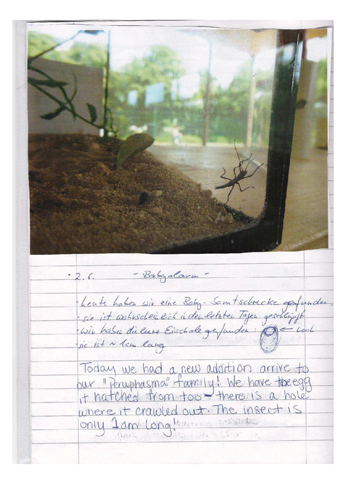 · 2.6. - Babyalarm -
· heute haben wir eine Baby-Samtschrecke gefunden
· sie ist wahrscheinlich in den letzten Tagen geschlüpft
· wir haben die leere Eischale gefunden: ← Loch
· sie ist ~ 1cm lang
Today we had a new addition arrive to
our "Peruphasma" family! We have the egg
it hatched from too – there is a hole
where it crawled out. The insect is
only 1cm long!